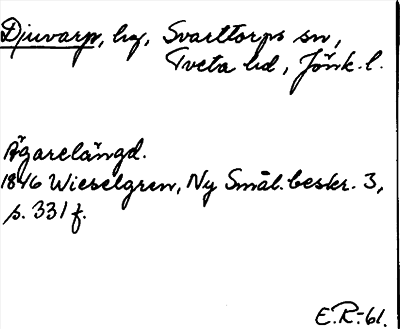 Djuvarp, hg, Svarttorps sn,
Tveta hd, Jönk. l.
Ägarelängd.
1846 Wieselgren, Ny Smål. beskr. 3,
s. 331 f.
E.R.-61.